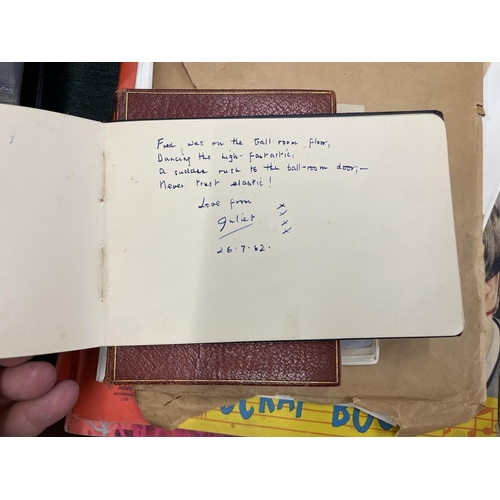 Fred was on the ball room floor,
Dancing the high-fantastic,
A sudden rush to the ball-room door;—
Never trust elastic!
Love from x
Juliet x
x
x
26.7.62.
SCRAP BOO